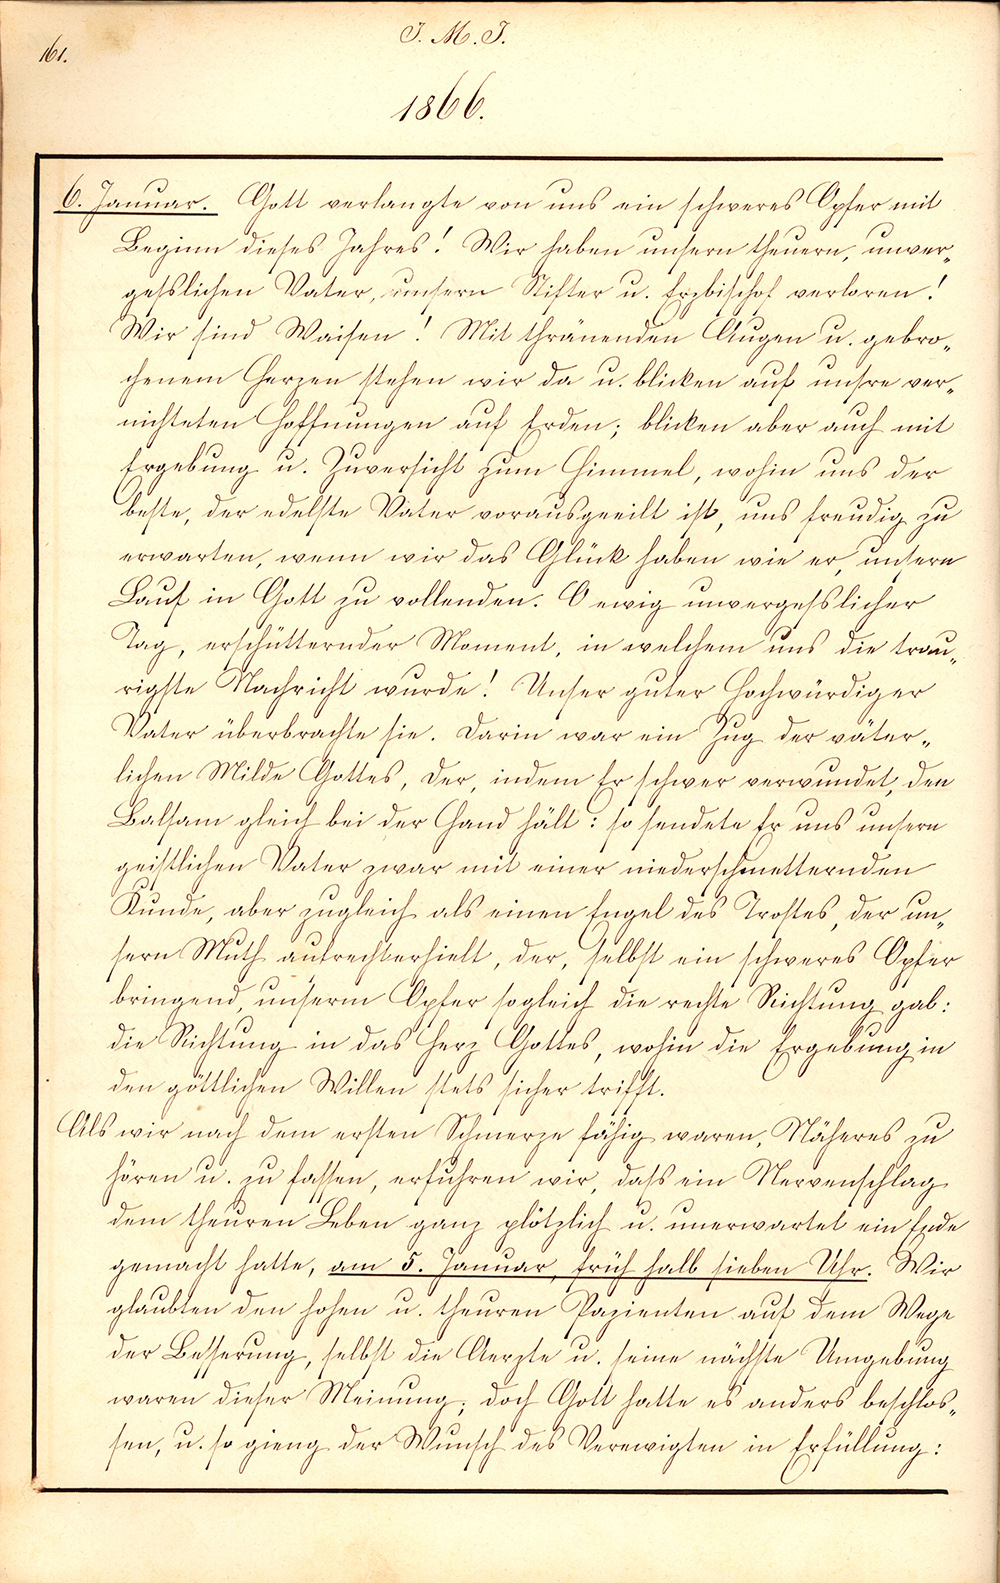 161.
J. M. J.
1866.
6. Januar. Gott verlangte von uns ein schweres Opfer mit
Beginn dieses Jahres! Wir haben unsern theuern, unver„
gesslichen Vater, unsern Stifter u. Erzbischof verloren!
Wir sind Waisen! Mit thränenden Augen u. gebro„
chenem Herzen stehen wir da u. blicken auf unsre ver„
nichteten Hoffnungen auf Erden; blicken aber auch mit
Ergebung u. Zuversicht zum Himmel, wohin uns der
beste, der edelste Vater vorausgeeilt ist, uns freudig zu
erwarten, wenn wir das Glück haben wie er, unsern
Lauf in Gott zu vollenden. O ewig unvergesslicher
Tag, erschütternder Moment, in welchem uns die trau„
rigste Nachricht wurde! Unser guter Hochwürdiger
Vater überbrachte sie. Darin war ein Zug der väter„
lichen Milde Gottes, der, indem Er schwer verwundet, den
Balsam gleich bei der Hand hält: so sendete Er uns unsern
geistlichen Vater zwar mit einer niederschmetternden
Kunde, aber zugleich als einen Engel des Trostes, der un„
sern Muth aufrechterhielt, der, selbst ein schweres Opfer
bringend, unserm Opfer sogleich die rechte Richtung gab:
die Richtung in das Herz Gottes, wohin die Ergebung in
den göttlichen Willen stets sicher trifft.
Als wir nach dem ersten Schmerze fähig waren, Näheres zu
hören u. zu fassen, erfuhren wir, dass ein Nervenschlag
dem theuren Leben ganz plötzlich u. unerwartet ein Ende
gemacht hatte, am 5. Januar, früh halb sieben Uhr. Wir
glaubten den hohen u. theuren Pazienten auf dem Wege
der Besserung, selbst die Aerzte u. seine nächste Umgebung
waren dieser Meinung; doch Gott hatte es anders beschlos„
sen, u. so gieng der Wunsch des Verewigten in Erfüllung: